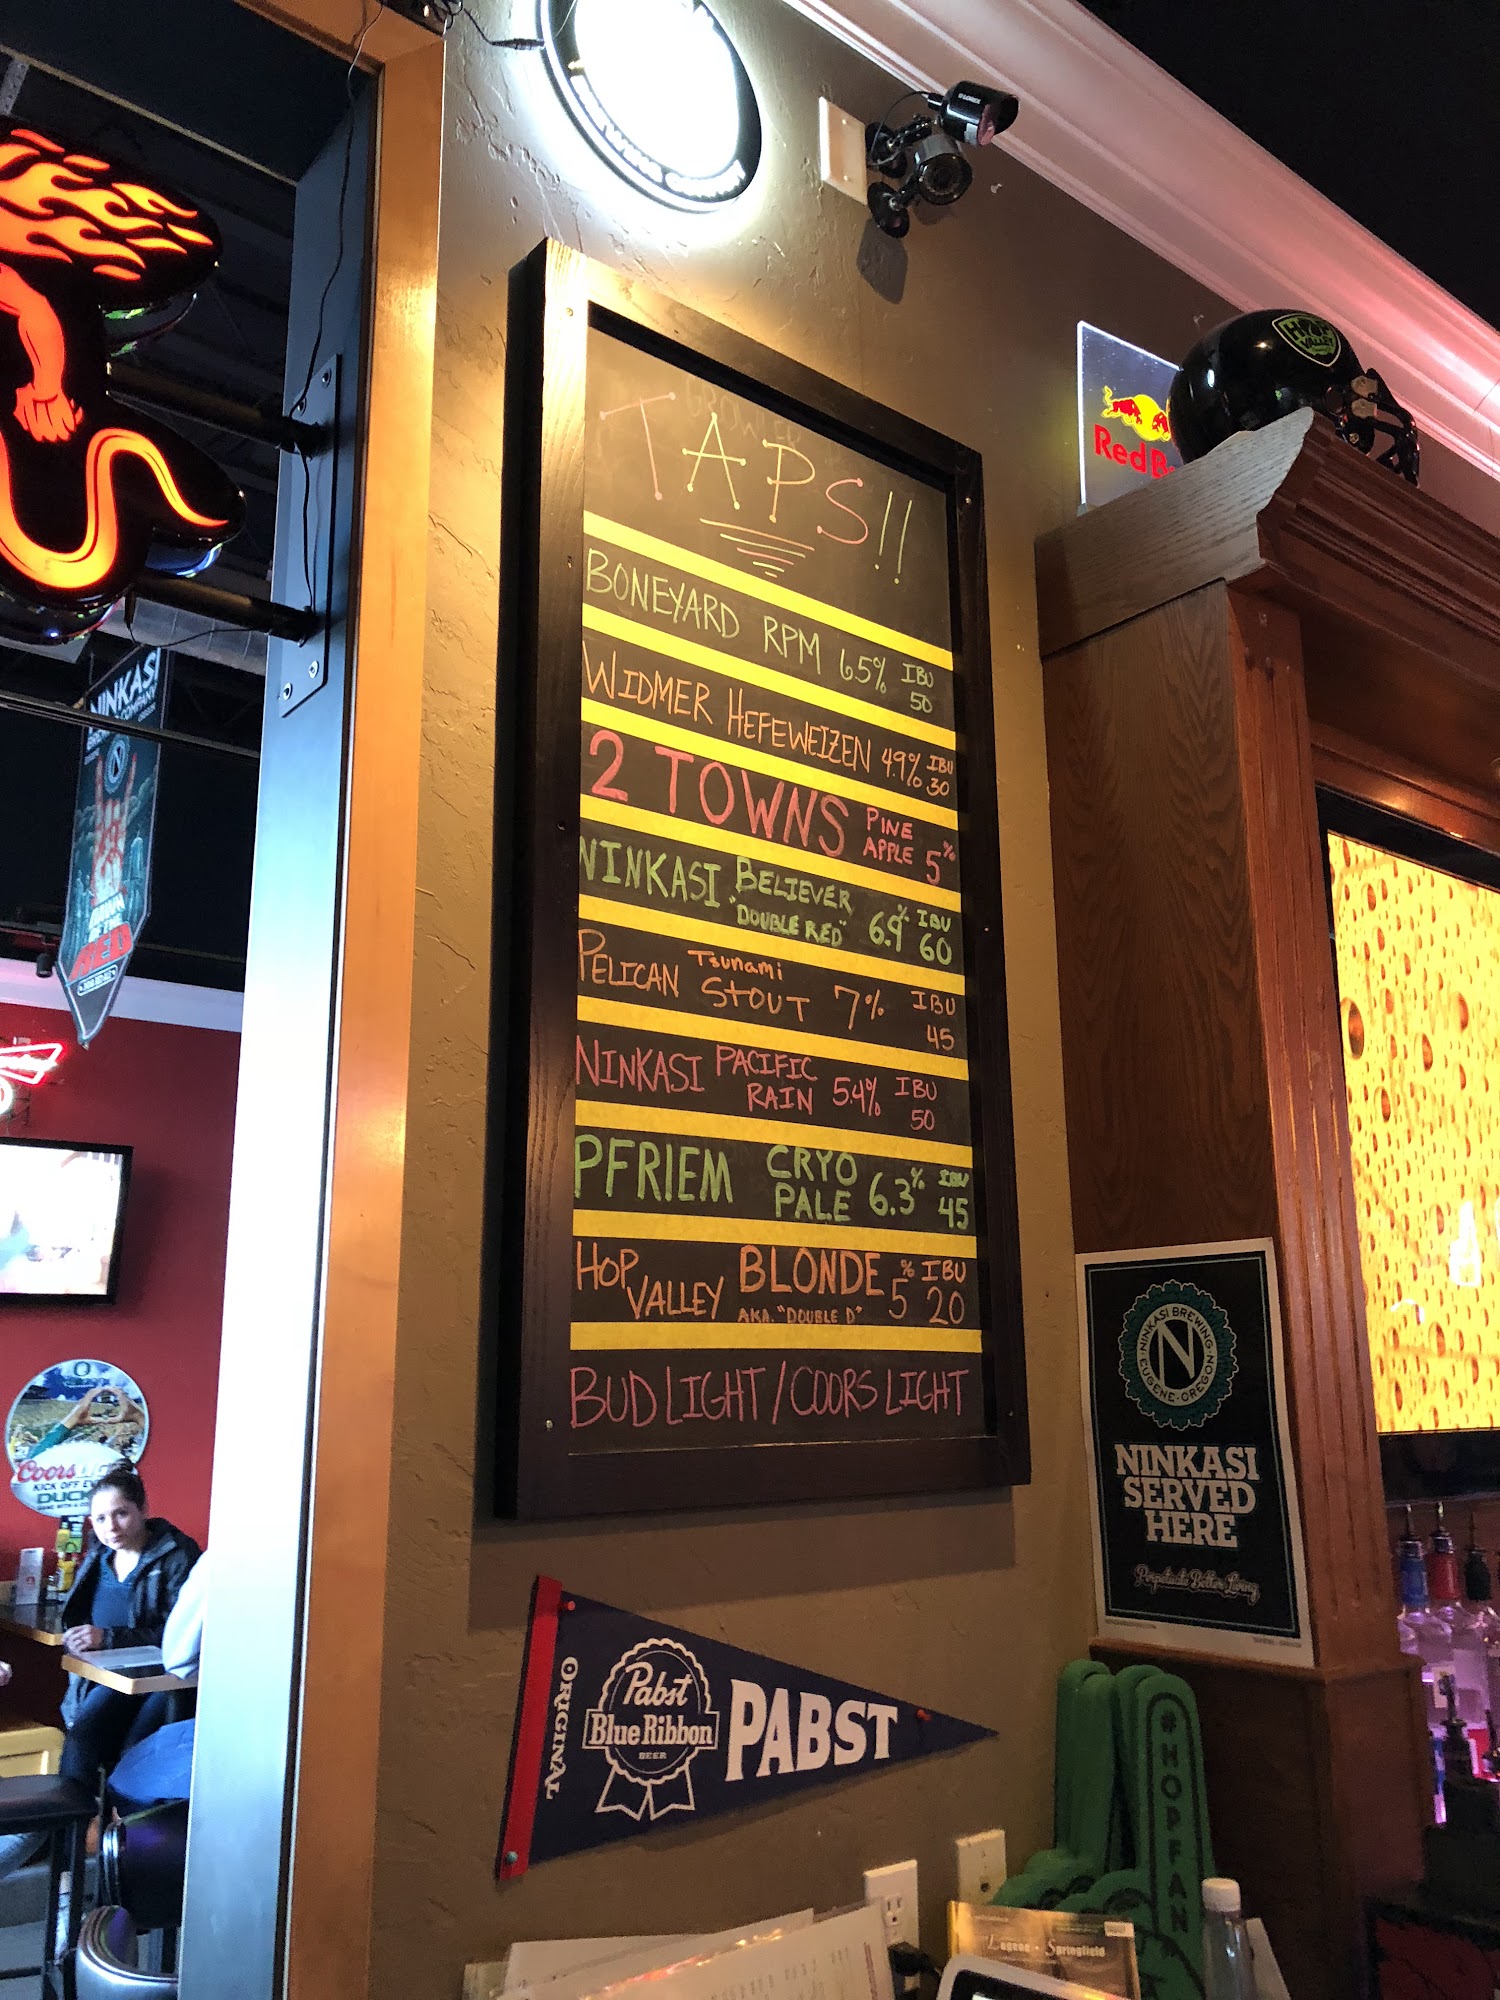 GROWLER
TAPS!!
BONEYARD RPM 6.5% IBU 50
WIDMER HEFEWEIZEN 4.9% IBU 30
2 TOWNS PINE APPLE 5%
NINKASI BELIEVER "DOUBLE RED" 6.9% IBU 60
PELICAN Tsunami STOUT 7% IBU 45
NINKASI PACIFIC RAIN 5.4% IBU 50
PFRIEM CRYO PALE 6.3% IBU 45
HOP VALLEY BLONDE AKA. "DOUBLE D" 5% IBU 20
BUD LIGHT / COORS LIGHT
LOREX
HOP VALLEY
Red B
NINKASI
DAWN OF THE RED
Coors
KICK OFF
DUCK
NINKASI BREWING
EUGENE-OREGON
N
NINKASI
SERVED
HERE
Perpetuate Better Living
ORIGINAL
Pabst
Blue Ribbon
BEER
PABST
#HOPFAN
Eugene • Springfield